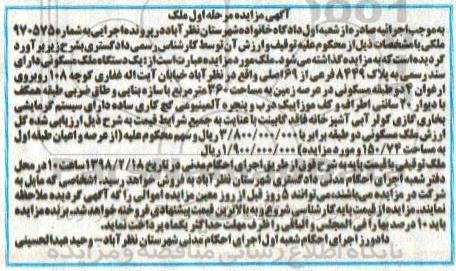 آگهی مزایده مرحله اول ملک
به موجب اجرائیه صادره از شعبه اول دادگاه خانواده شهرستان نظرآباد در پرونده اجرایی به شماره ۹۷۰۵۷۵
ملکی با مشخصات ذیل از محکوم علیه توقیف و ارزش آن توسط کارشناس رسمی دادگستری بشرح زیر برآورد
گردیده است که به مزایده گذاشته می‌شود. ملک مورد مزایده عبارت است از: یک دستگاه ملک مسکونی دارای
سند رسمی به پلاک ۸۴۴۹ فرعی از ۶۹ اصلی واقع در نظرآباد خیابان آیت اله غفاری کوچه ۱۰۸ روبروی
ارغوان ۲ دو طبقه مسکونی در عرصه زمین به مساحت ۳۶۰ متر مربع با سازه بنایی و طاق ضربی طبقه همکف
با دیوار ۲۰ سانتی اطراف و کف موزاییک درب و پنجره آلمینیومی گچ کاری ساده دارای سیستم گرمایشی
بخاری گازی کولر آبی آشپزخانه فاقد کابینت با عنایت به جمیع شرایط قیمت به شرح ذیل ارزیابی شده کل
ارزش ملک مسکونی دو طبقه برابر با ۳/۸۰۰/۰۰۰/۰۰۰ ریال سهم محکوم علیه (از عرصه و اعیان طبقه اول
به مساحت ۱۵۰/۷۴ مورد مزایده) ۱/۹۰۰/۰۰۰/۰۰۰ ریال
ملک توقیفی با قیمت پایه به شرح فوق از طریق اجرای احکام مدنی در تاریخ ۱۳۹۸/۲/۱۸ ساعت ۱۰ در محل
دفتر شعبه اجرای احکام مدنی دادگستری شهرستان نظرآباد به فروش خواهد رسید. اشخاصی که مایل به
شرکت در مزایده می‌باشند، می‌توانند ۵ روز قبل از روز معین مزایده اموالی را که آگهی گردیده ملاحظه
نمایند. مزایده از قیمت پایه کارشناسی شروع و به بالاترین قیمت پیشنهادی فروخته خواهد شد. برنده مزایده
باید ۱۰ درصد بها را فی المجلس و الباقی را ظرف مهلت حداکثر یکماه پرداخت نماید.
دادورز اجرای احکام شعبه اول اجرای احکام مدنی شهرستان نظرآباد – وحید عبدالحسینی